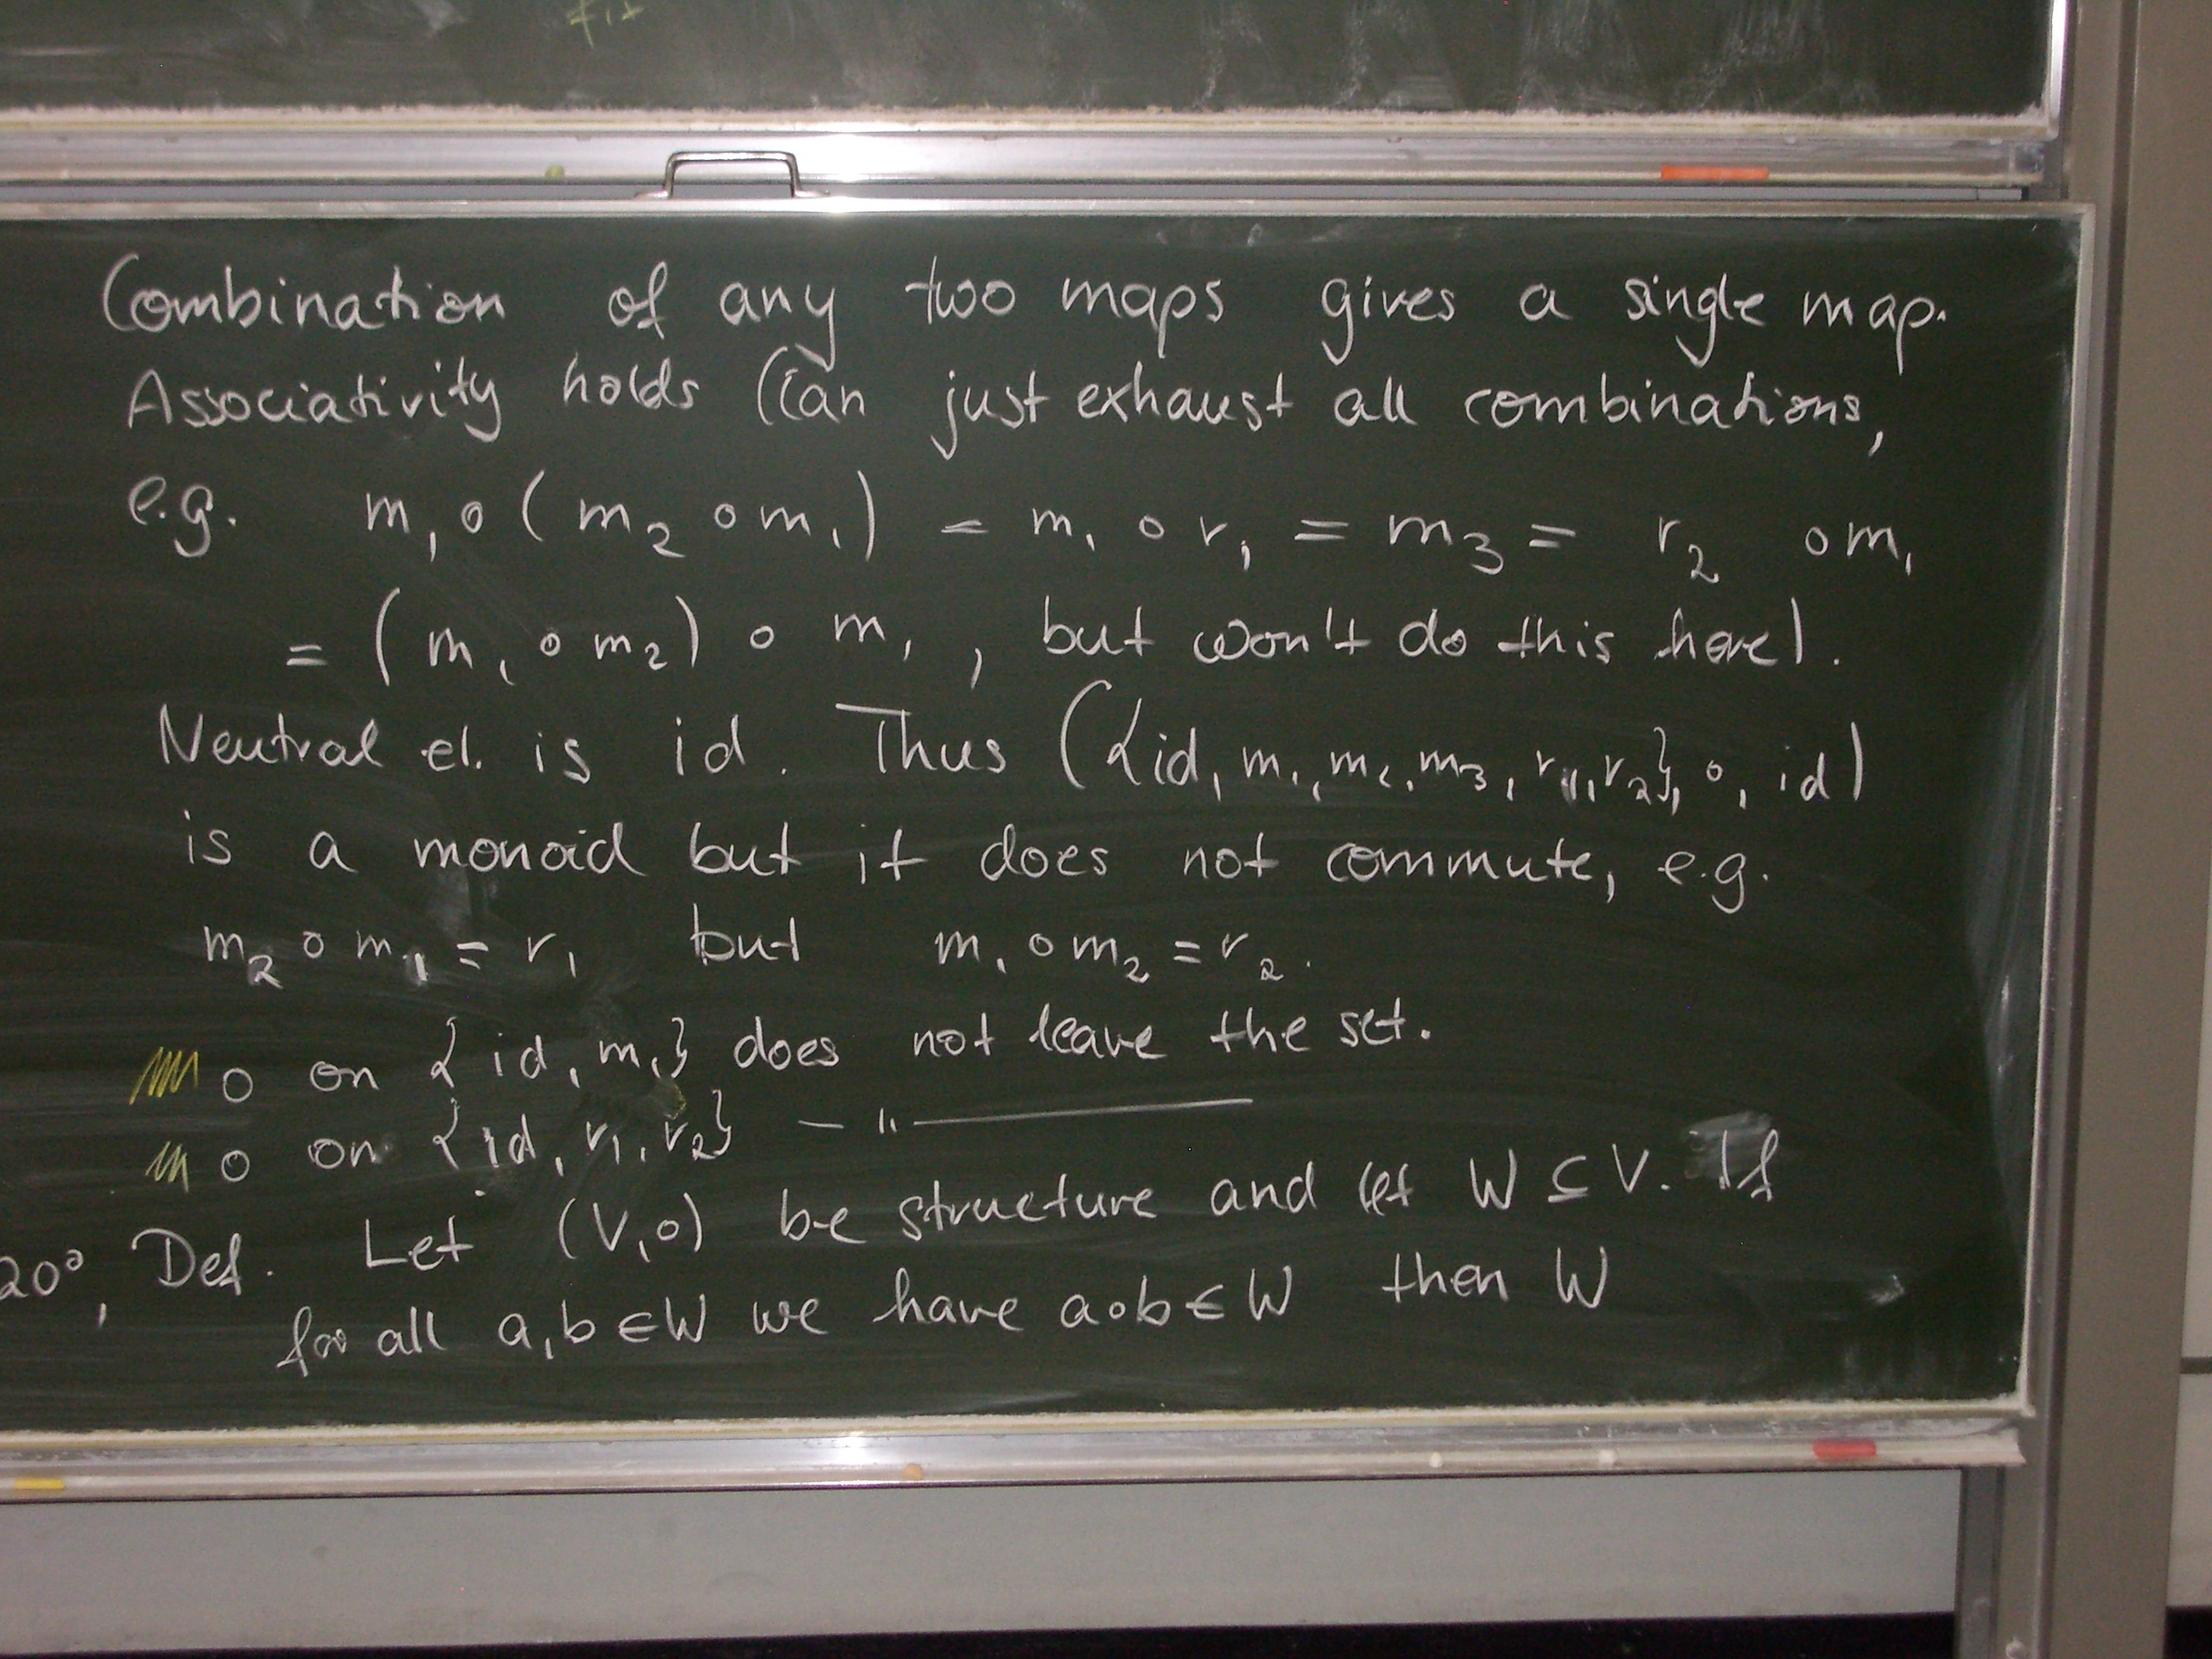 Combination of any two maps gives a single map.
Associativity holds (Can just exhaust all combinations,
e.g. m₁ ∘ (m₂ ∘ m₁) = m₁ ∘ r₁ = m₃ = r₂ ∘ m₁
= (m₁ ∘ m₂) ∘ m₁ , but won't do this here).
Neutral el. is id. Thus ({id, m₁, m₂, m₃, r₁, r₂}, ∘, id)
is a monoid but it does not commute, e.g.
m₂ ∘ m₁ = r₁ but m₁ ∘ m₂ = r₂.
∘ on {id, m₁} does not leave the set.
∘ on {id, r₁, r₂} — " —
20°, Def. Let (V, ∘) be structure and let W ⊆ V. If
for all a, b ∈ W we have a∘b ∈ W then W